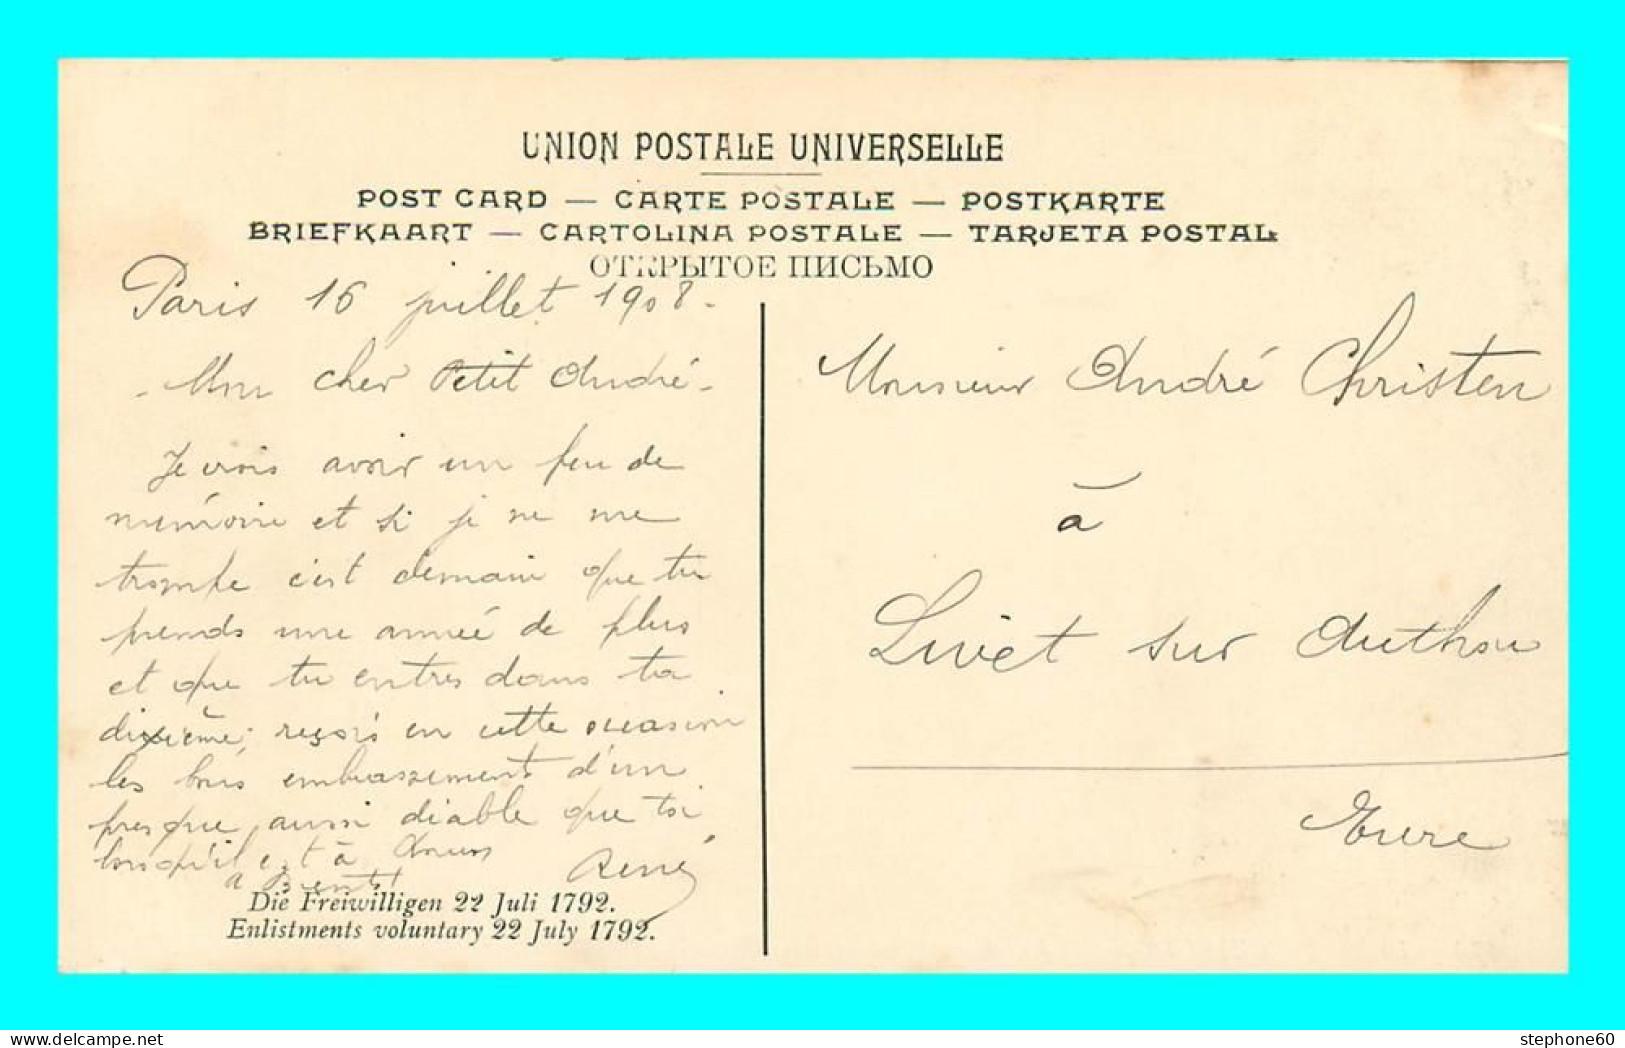 UNION POSTALE UNIVERSELLE
POST CARD — CARTE POSTALE — POSTKARTE
BRIEFKAART — CARTOLINA POSTALE — TARJETA POSTAL
ОТКРЫТОЕ ПИСЬМО
Paris 16 juillet 1908.
- Mon cher Petit André -
Je crois avoir un peu de
mémoire et si je ne me
trompe c'est demain que tu
prends une année de plus
et que tu entres dans ta
dixième; reçois en cette occasion
les bons embrassements d'un
presque aussi diable que toi
lorsqu'il est à
à Bientôt René
Die Freiwilligen 22 Juli 1792.
Enlistments voluntary 22 July 1792.
Monsieur André Christen
à
Livet sur Authou
Eure
stephone60